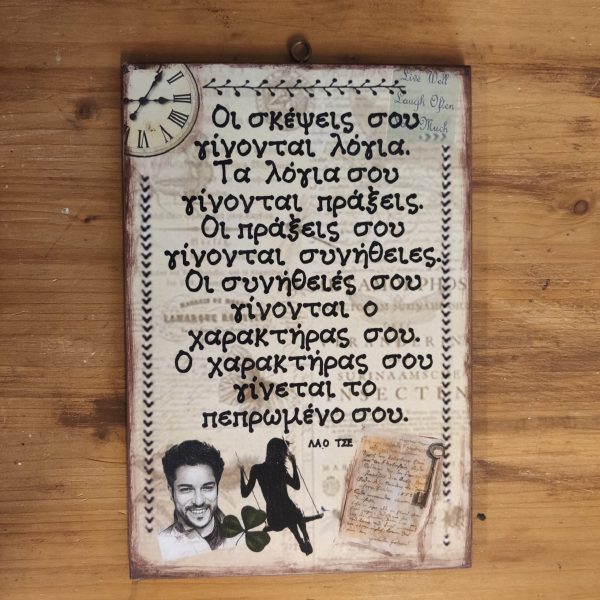 Live Well
Laugh Often
Much
Οι σκέψεις σου
γίνονται λόγια.
Τα λόγια σου
γίνονται πράξεις.
Οι πράξεις σου
γίνονται συνήθειες.
Οι συνήθειές σου
γίνονται ο
χαρακτήρας σου.
Ο χαρακτήρας σου
γίνεται το
πεπρωμένο σου.
ΛΑΟ ΤΖΕ